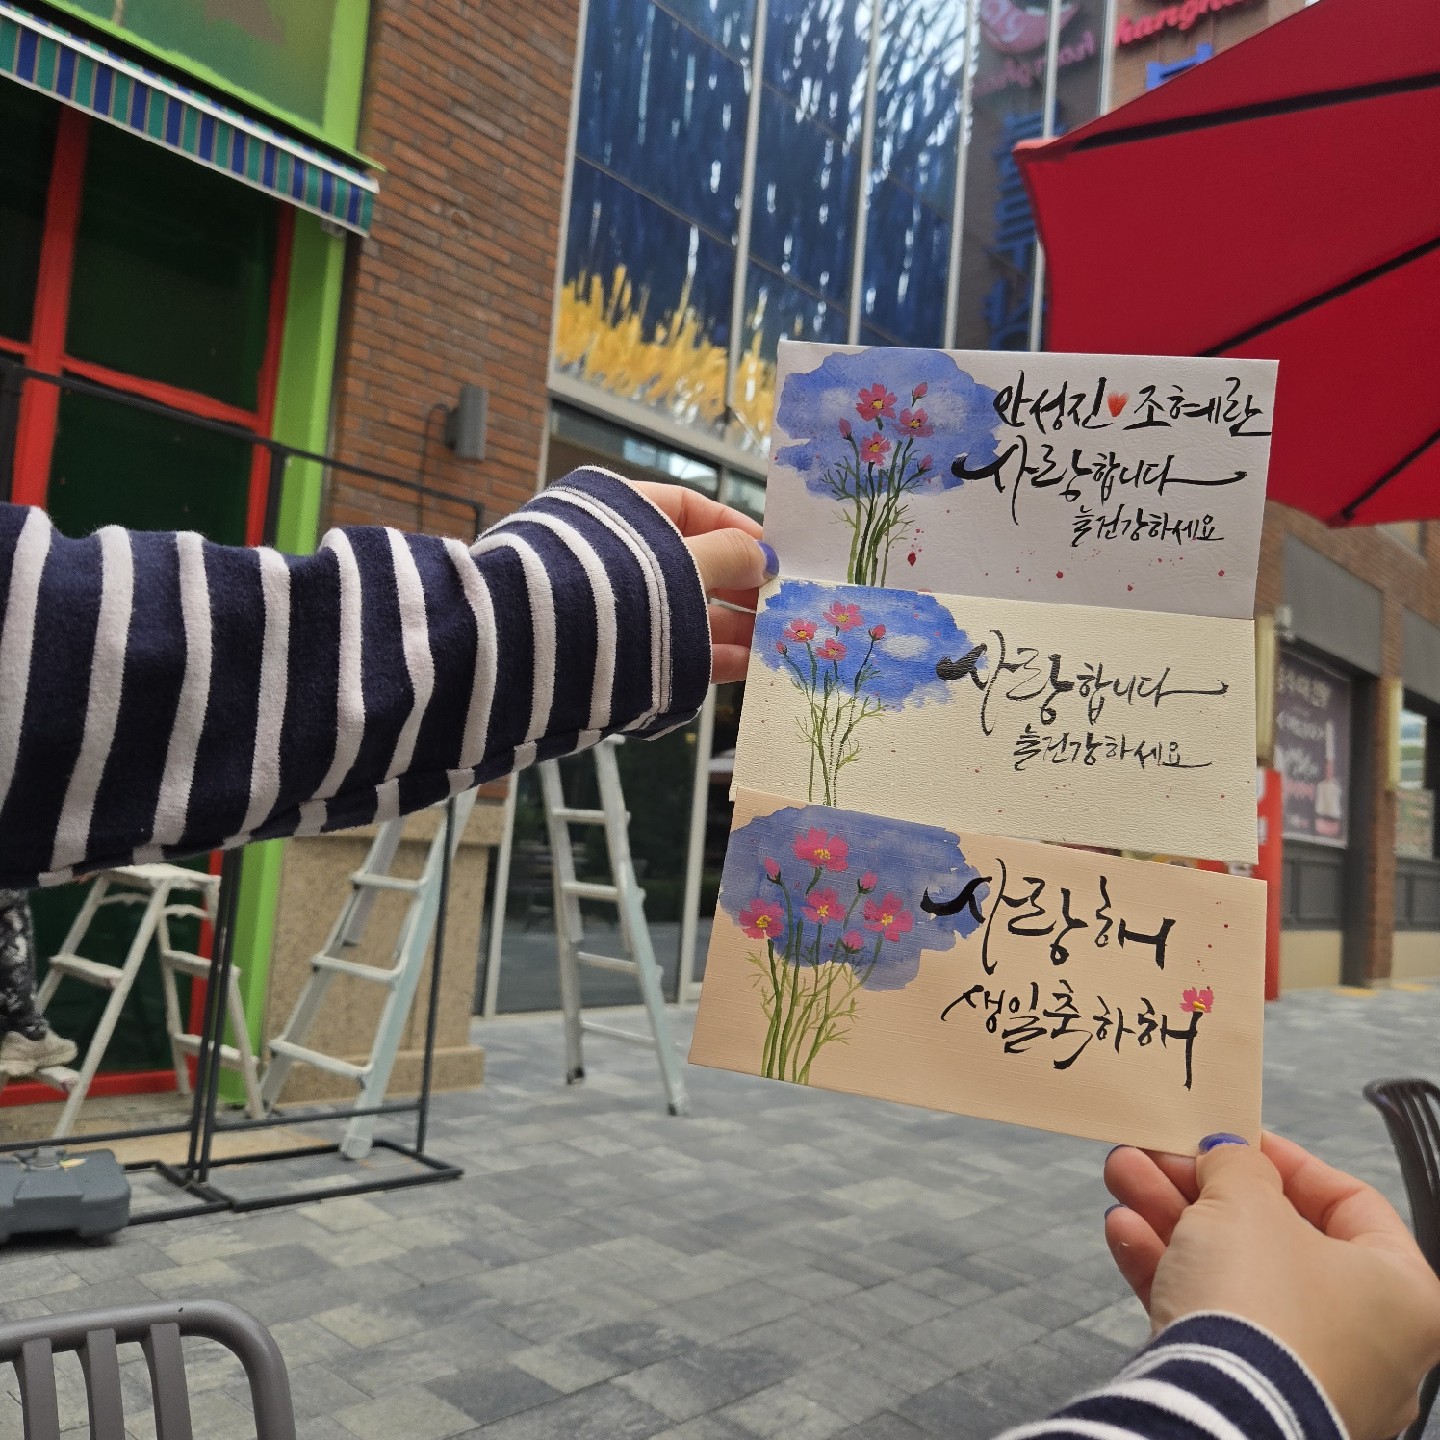 안성진♥조혜란
사랑합니다
늘건강하세요
사랑합니다
늘건강하세요
사랑해
생일축하해